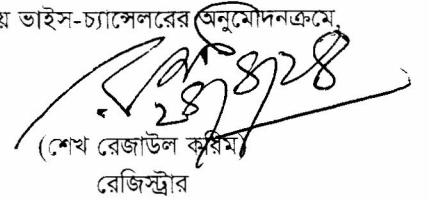 য় ভাইস-চ্যান্সেলরের অনুমোদনক্রমে,
২৪/৪/২৪
(শেখ রেজাউল করিম)
রেজিস্ট্রার